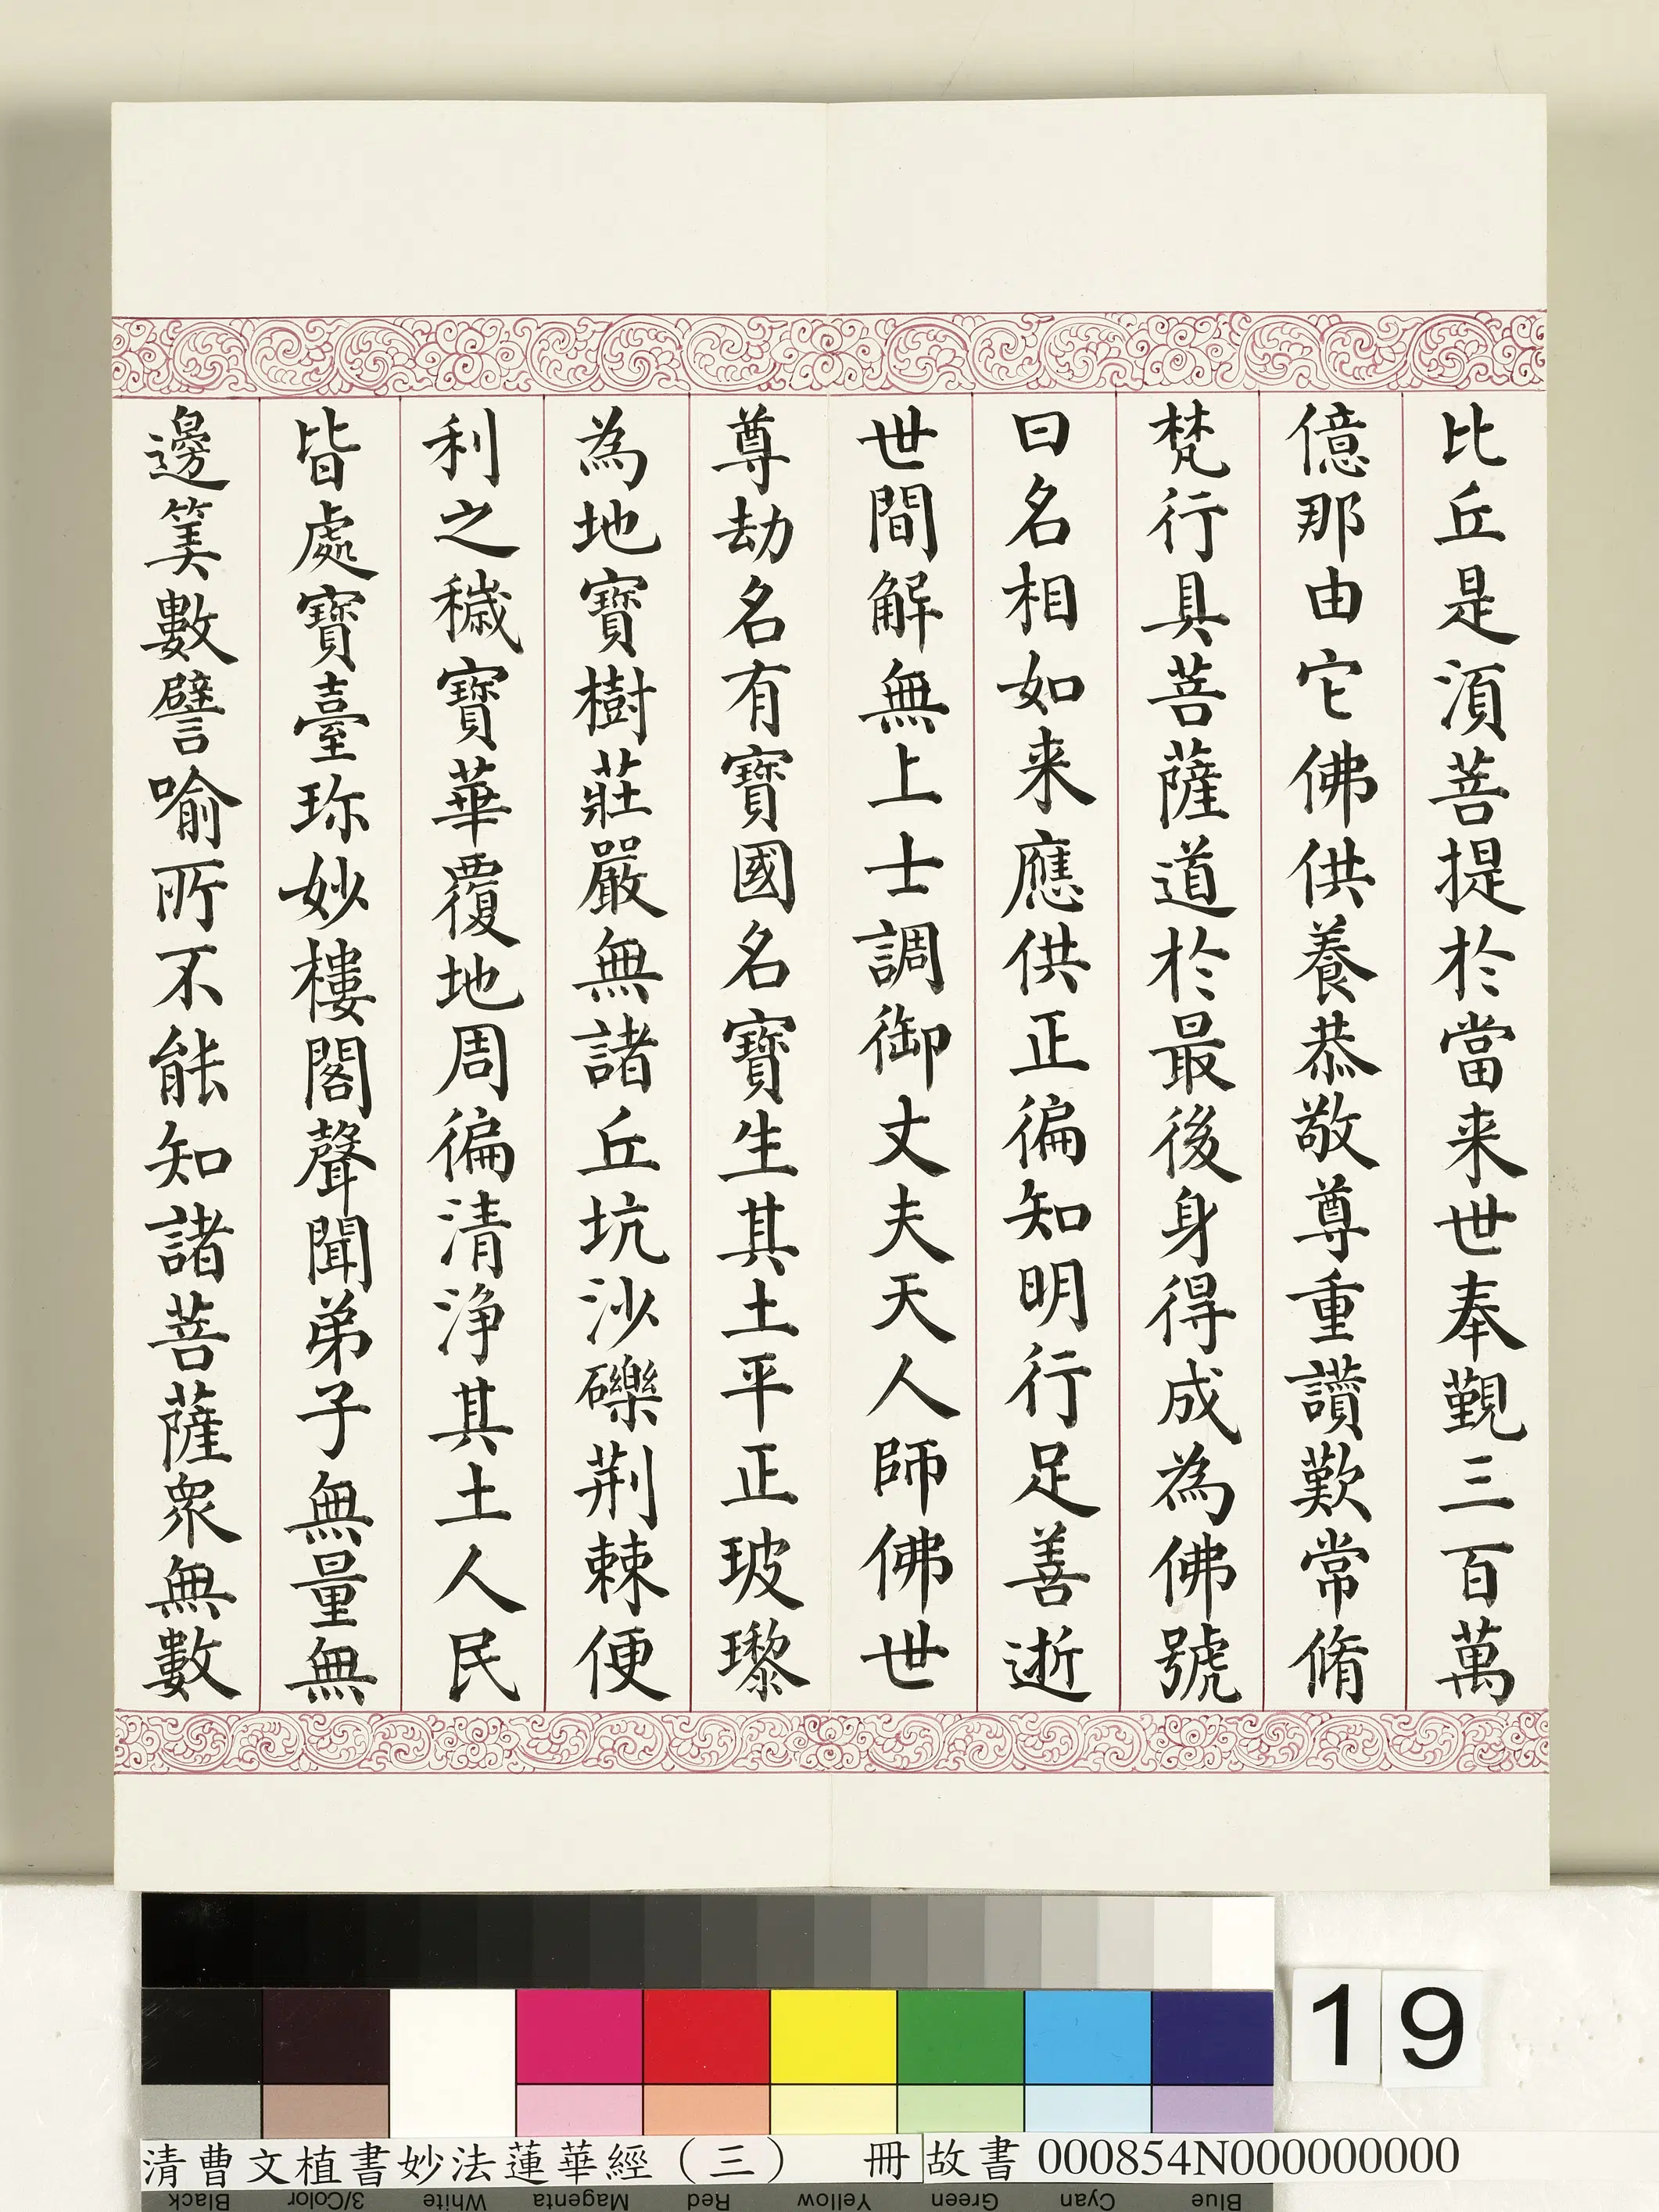 比丘是湏菩提於當来世奉覲三百萬
億那由它佛供養恭敬尊重讚歎常脩
梵行具菩薩道於最後身得成為佛號
曰名相如来應供正徧知明行足善逝
世間解無上士調御丈夫天人師佛世
尊劫名有寶國名寶生其土平正玻瓈
為地寶樹莊嚴無諸丘坑沙礫荆棘便
利之穢寶華覆地周徧清淨其土人民
皆處寶臺珎妙樓閣聲聞弟子無量無
邊筭數譬喻所不能知諸菩薩衆無數
19
清曹文植書妙法蓮華經（三） 冊 故書 000854N000000000
Black 3/Color White Magenta Red Yellow Green Cyan Blue